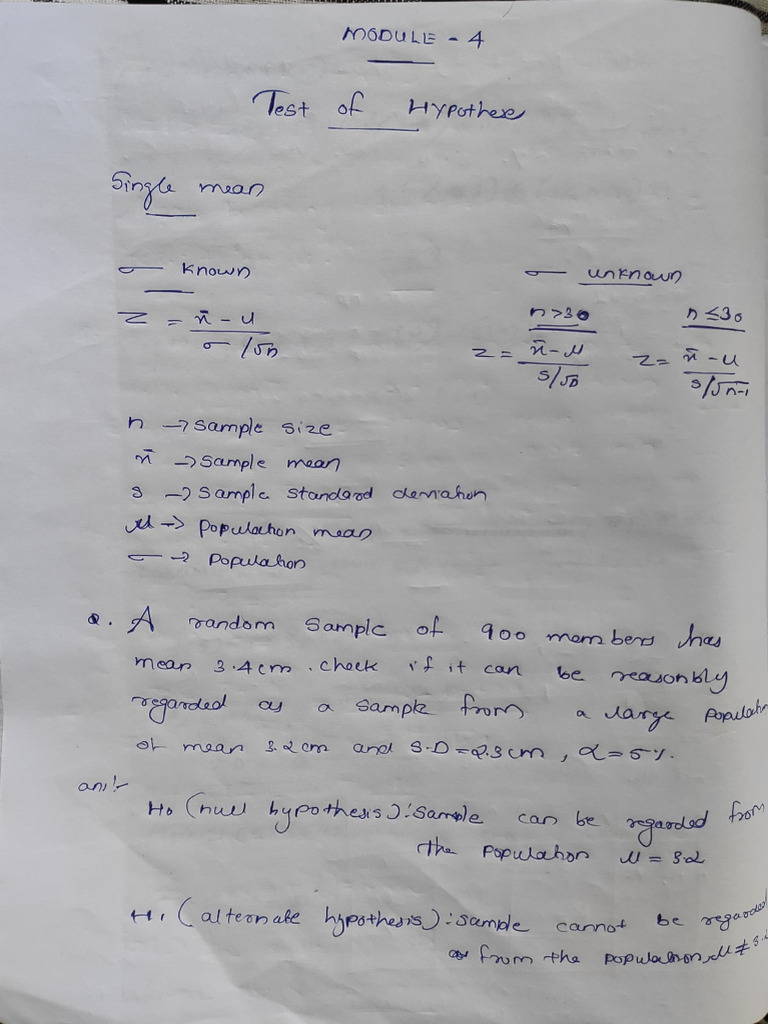 MODULE - 4
Test of Hypothese
Single mean
σ known
σ unknown
n>30 n≤30
Z = x̄ - μ / σ/√n
Z = x̄ - μ / s/√n Z = x̄ - μ / s/√n-1
n → Sample size
x̄ → Sample mean
s → Sample standard deviation
μ → population mean
σ → Population
Q. A random sample of 900 members has
mean 3.4cm. check if it can be reasonbly
regarded as a sample from a large Populatn
of mean 3.2cm and S.D = 2.3cm, α = 5%.
ans:-
H0 (null hypothesis): Sample can be regarded from
the population μ = 3.2
H1 (alternate hypothesis): Sample cannot be regarded
from the population, μ ≠ 3.2